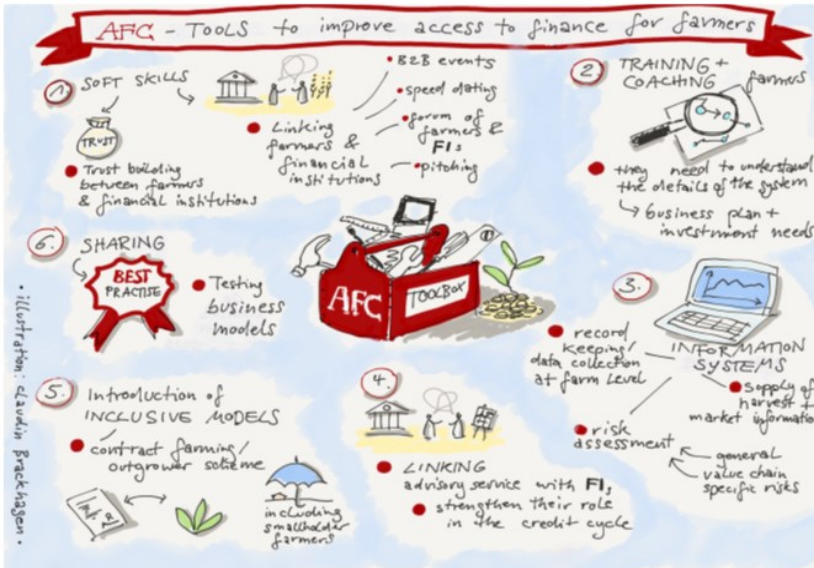 AFC - TOOLS to improve access to finance for farmers
1. SOFT SKILLS
TRUST
Trust building
between farmers
& financial institutions
Linking
farmers &
financial
institutions
B2B events
speed dating
forum of
farmers &
FIs
pitching
2. TRAINING +
COACHING farmers
they need to understand
the details of the system
business plan +
investment needs
3.
INFORMATION
SYSTEMS
record
keeping/
data collection
at farm level
supply of
harvest +
market information
risk
assessment
general
value chain
specific risks
4.
LINKING
advisory service with FIs
strengthen their role
in the credit cycle
5. Introduction of
INCLUSIVE MODELS
contract farming/
outgrower scheme
including
smallholder
farmers
6. SHARING
BEST
PRACTISE
Testing
business
models
AFC
TOOLBOX
• illustration: claudia Brackhagen •